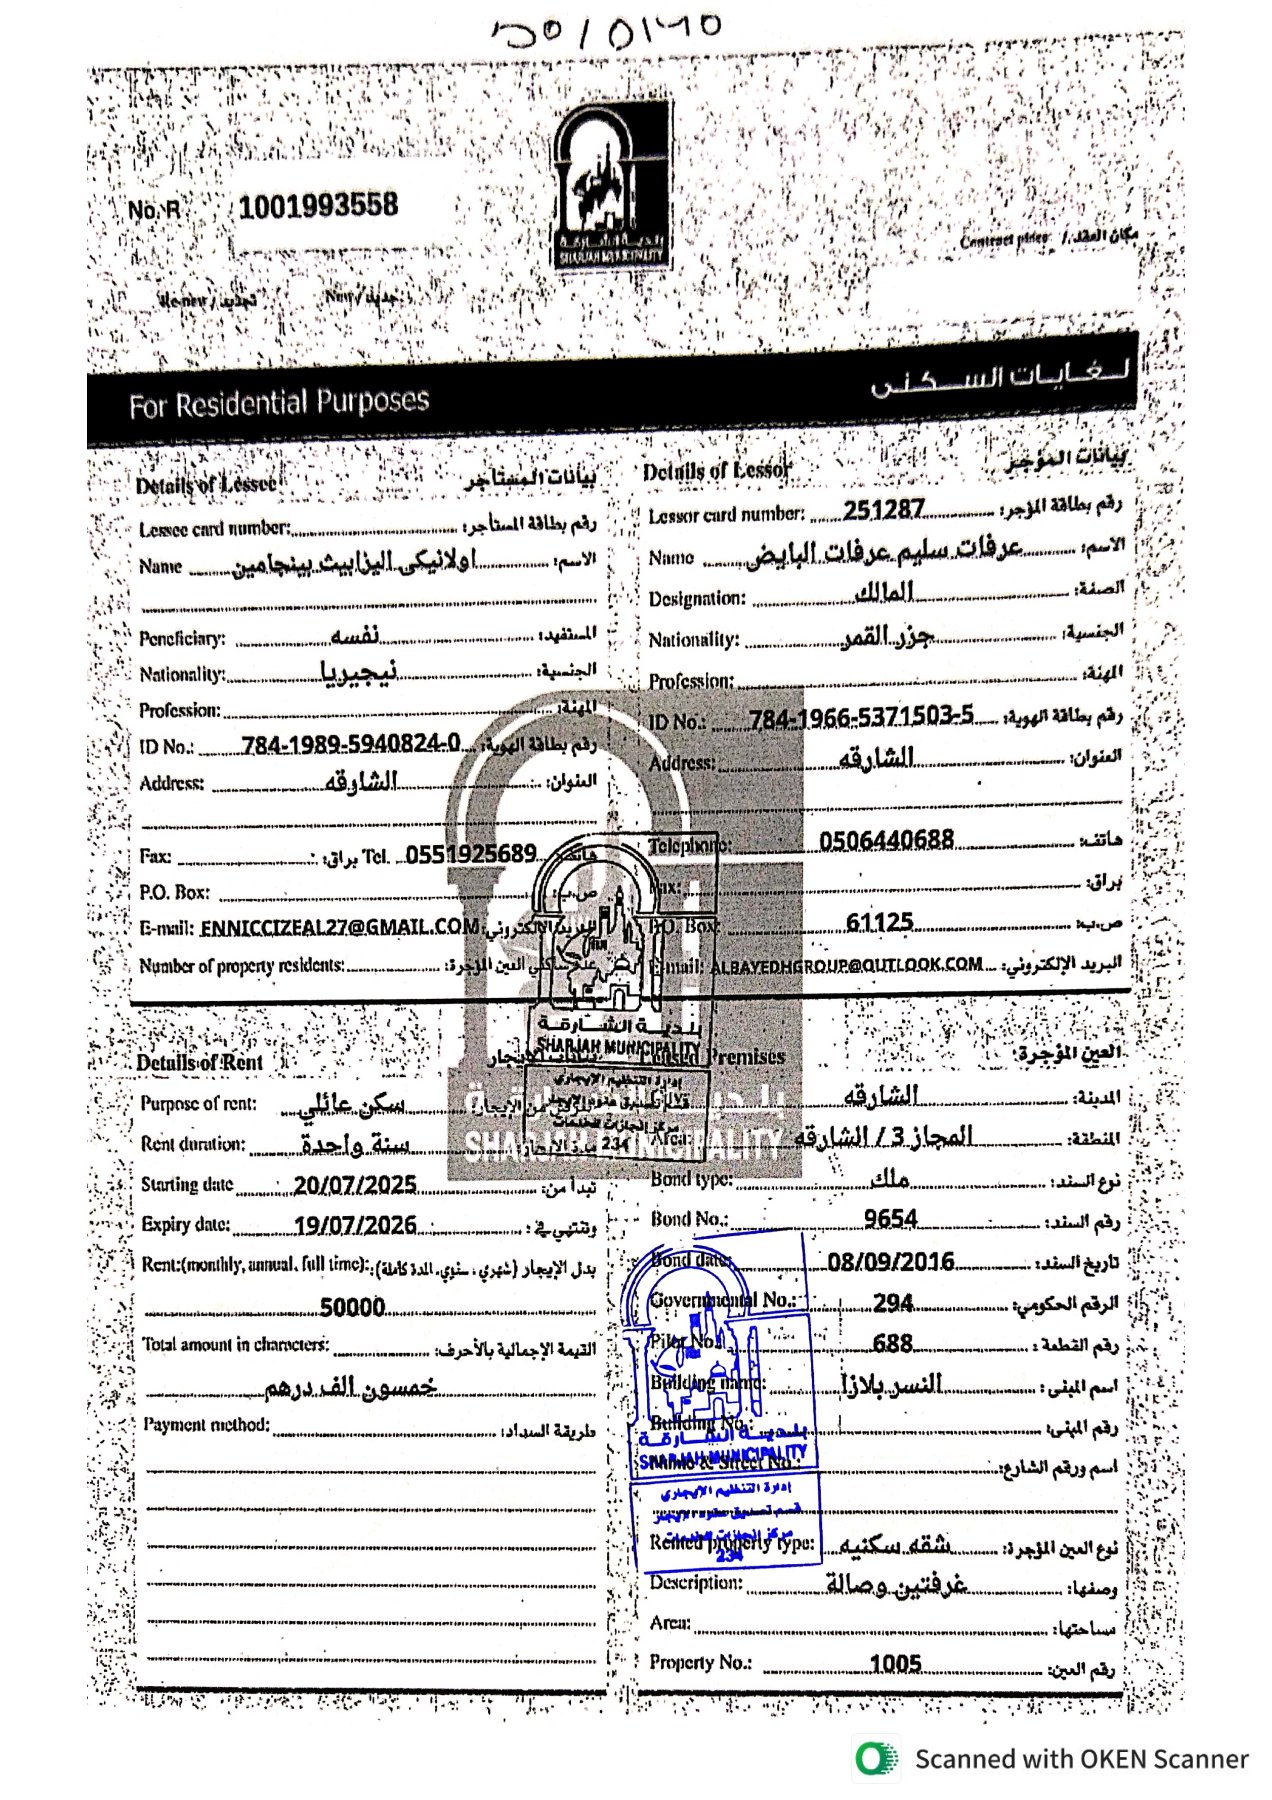 No. R 1001993558
بلدية الشارقة
SHARJAH MUNICIPALITY
Contract place: / مكان العقد
Re-new / تجديد New / جديد
For Residential Purposes لغايات السكنى
Details of Lessee بيانات المستأجر
Lessee card number: رقم بطاقة المستأجر:
Name اولانيكي اليزابيث بينجامين الاسم:
Peneficiary: نفسه المستفيد:
Nationality: نيجيريا الجنسية:
Profession: المهنة:
ID No.: 784-1989-5940824-0 رقم بطاقة الهوية:
Address: الشارقه العنوان:
Fax: براق: Tel. 0551925689 هاتف:
P.O. Box: ص.ب:
E-mail: ENNICCIZEAL27@GMAIL.COM البريد الإلكتروني:
Number of property residents: عدد ساكني العين المؤجرة:
Details of Lessor بيانات المؤجر
Lessor card number: 251287 رقم بطاقة المؤجر:
Name عرفات سليم عرفات البايض الاسم:
Designation: المالك الصفة:
Nationality: جزر القمر الجنسية:
Profession: المهنة:
ID No.: 784-1966-5371503-5 رقم بطاقة الهوية:
Address: الشارقه العنوان:
Telephone: 0506440688 هاتف:
Fax: براق:
P.O. Box: 61125 ص.ب:
E-mail: ALBAYEDHGROUP@OUTLOOK.COM البريد الإلكتروني:
Details of Rent بيانات الإيجار
Purpose of rent: سكن عائلي الغرض من الإيجار:
Rent duration: سنة واحدة مدة الإيجار:
Starting date 20/07/2025 تبدأ من:
Expiry date: 19/07/2026 وتنتهي في:
Rent:(monthly, annual, full time): بدل الإيجار (شهري، سنوي، المدة كاملة):
50000
Total amount in characters: القيمة الإجمالية بالأحرف:
خمسون الف درهم
Payment method: طريقة السداد:
Leased Premises العين المؤجرة:
الشارقه المدينة:
Area: المجاز 3 / الشارقه المنطقة:
Bond type: ملك نوع السند:
Bond No.: 9654 رقم السند:
Bond date: 08/09/2016 تاريخ السند:
Governmental No.: 294 الرقم الحكومي:
Pilot No.: 688 رقم القطعة:
Building name: النسر بلازا اسم المبنى:
Building No.: رقم المبنى:
Name & Street No.: اسم ورقم الشارع:
Rented property type: شقه سكنيه نوع العين المؤجرة:
Description: غرفتين وصالة وصفها:
Area: مساحتها:
Property No.: 1005 رقم العين:
بلدية الشارقة
SHARJAH MUNICIPALITY
إدارة التنظيم الإيجاري
قسم تصديق عقود الإيجار
مركز إنجازات للخدمات
234
بلدية الشارقة
SHARJAH MUNICIPALITY
إدارة التنظيم الإيجاري
قسم تصديق عقود الإيجار
مركز إنجازات للخدمات
234
بلدية الشارقة
SHARJAH MUNICIPALITY
Scanned with OKEN Scanner